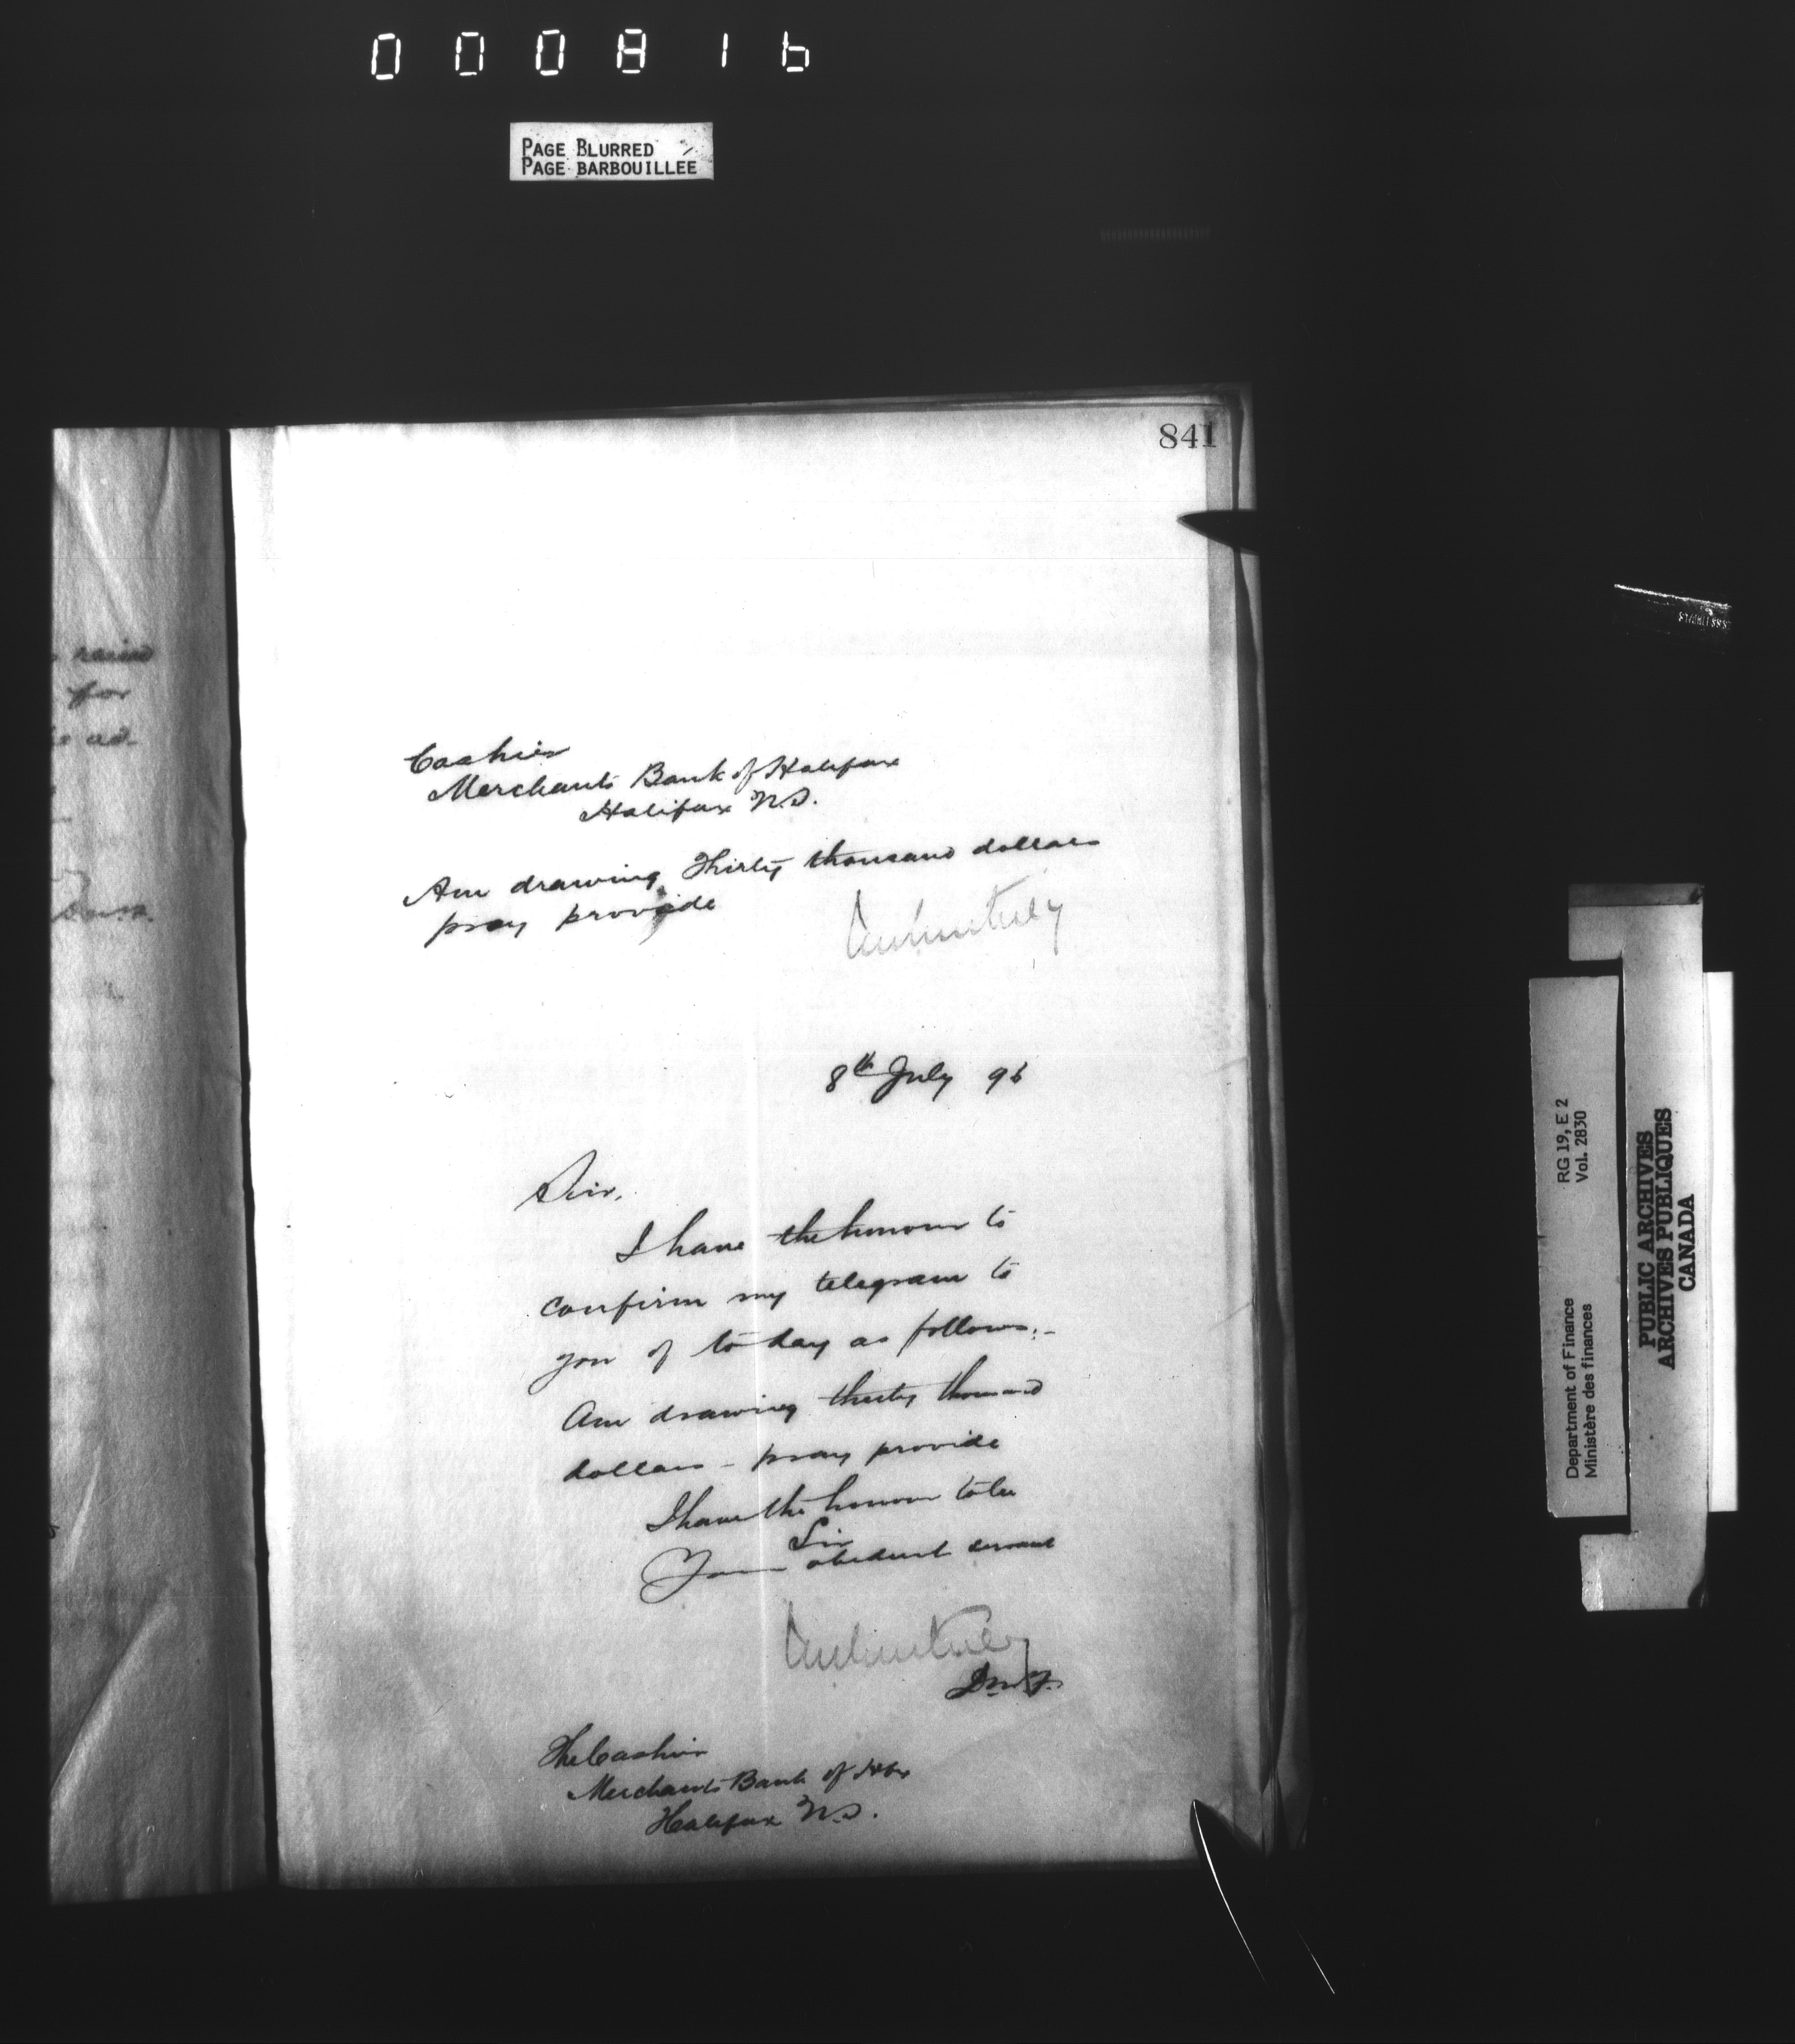 000816
PAGE BLURRED
PAGE BARBOUILLEE
841
raise
for
ad-
Cashier
Merchants Bank of Halifax
Halifax N.S.
Am drawing Thirty thousand dollars
pray provide
8th July 96
Sir,
I have the honour to
confirm my telegram to
you of to day as follows:-
Am drawing thirty thousand
dollars - pray provide
I have the honour to be
Sir
Your obedient servant
D.M.F.
The Cashier
Merchants Bank of Hfx
Halifax N.S.
STAINLESS
RG 19, E 2
Vol. 2830
Department of Finance
Ministère des finances
PUBLIC ARCHIVES
ARCHIVES PUBLIQUES
CANADA